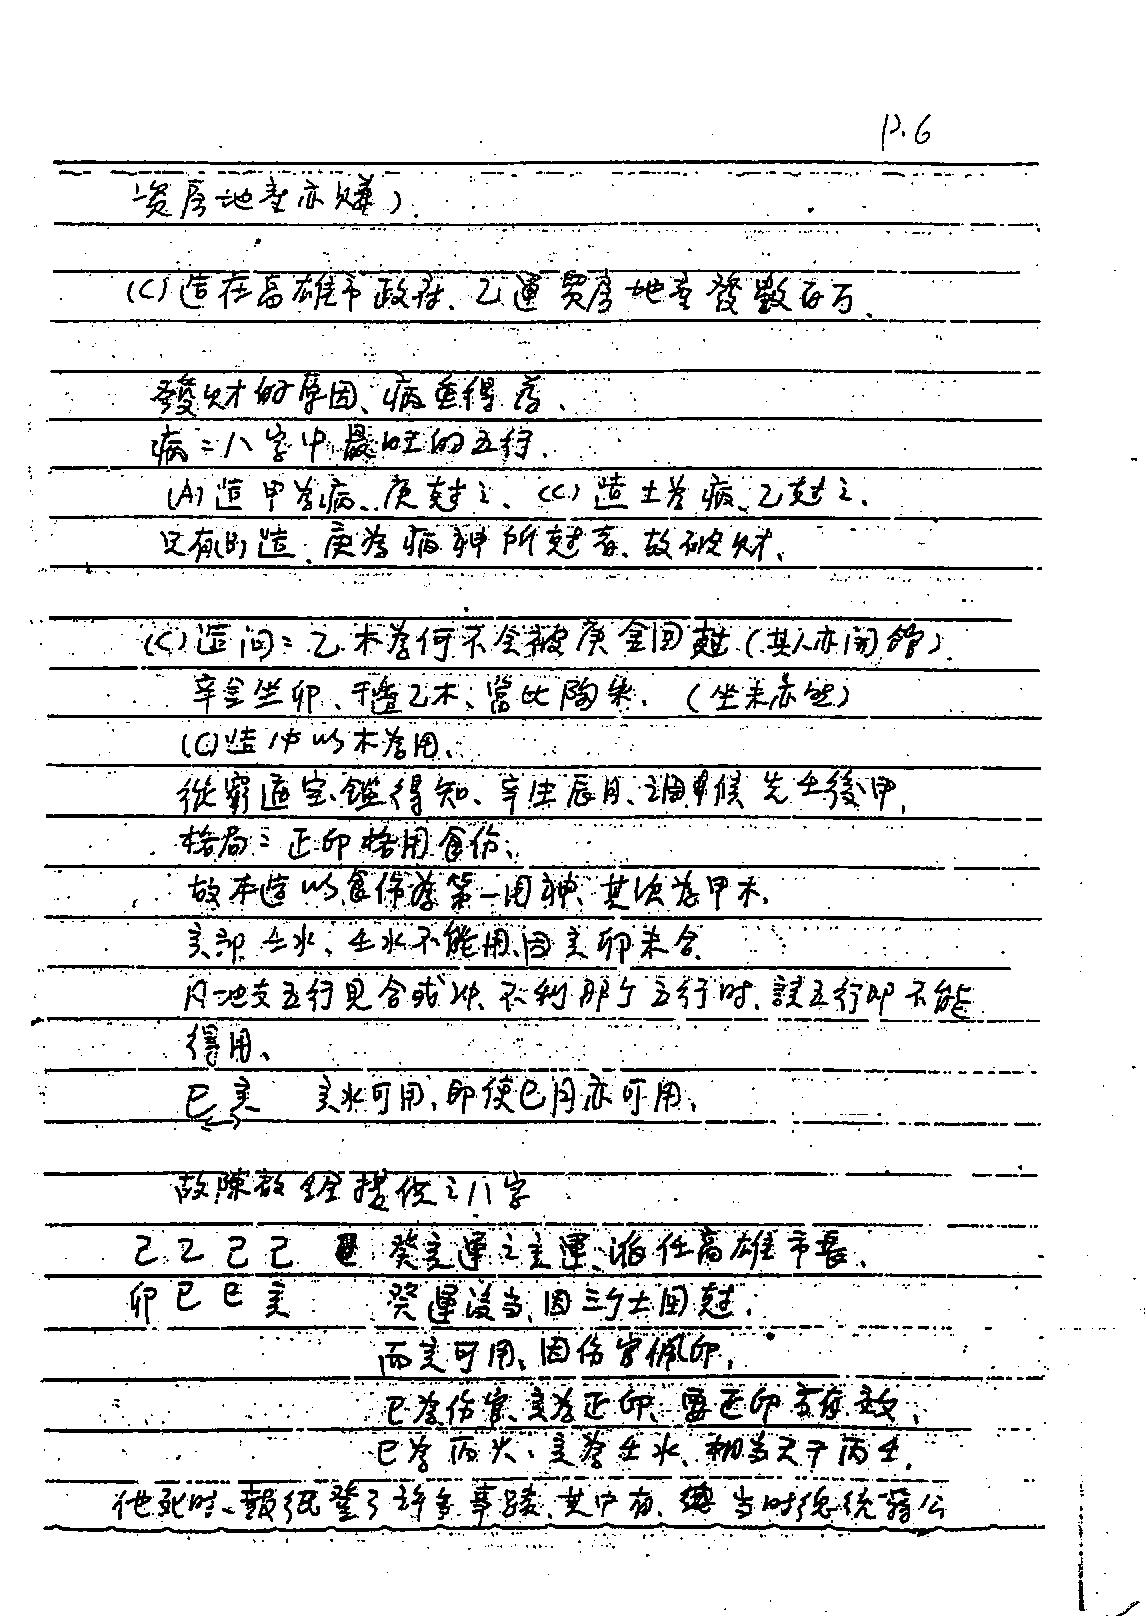 P.6
資房地產亦賺).
(C)造在高雄市政府、乙運買房地產發數百万.
發財的原因、病重得葯、
病:八字中最旺的五行.
(A)造甲為病、庚尅之、(C)造土為病、乙尅之.
只有(B)造、庚為病神所尅者、故破財、
(C)造问:乙木為何不会被庚金回尅(其人亦開館).
辛金坐卯、干透乙木、當比陶朱. (坐未亦然)
(C)造中以木為用、
從窮通宝鑑得知、辛生辰月、調候先壬後甲,
格局:正印格用食伤、
故本造以食傷為第一用神、其次為甲木.
亥部壬水、壬水不能用、因亥卯未合.
凡地支五行見合或冲、不利那个五行时、該五行即不能
得用、
巳亥 亥水可用、即使巳月亦可用、
故陳啟全提供之八字
己乙己己 癸亥運之亥運、派任高雄市長、
卯巳巳亥 癸運沒当、因三个土回尅.
而亥可用、因伤官佩印,
巳為伤官、亥為正印、要正印方有救、
巳為丙火、亥為壬水、相当天干丙壬.
他死时、報纸登了許多事蹟、其中有、當时總统蔣公